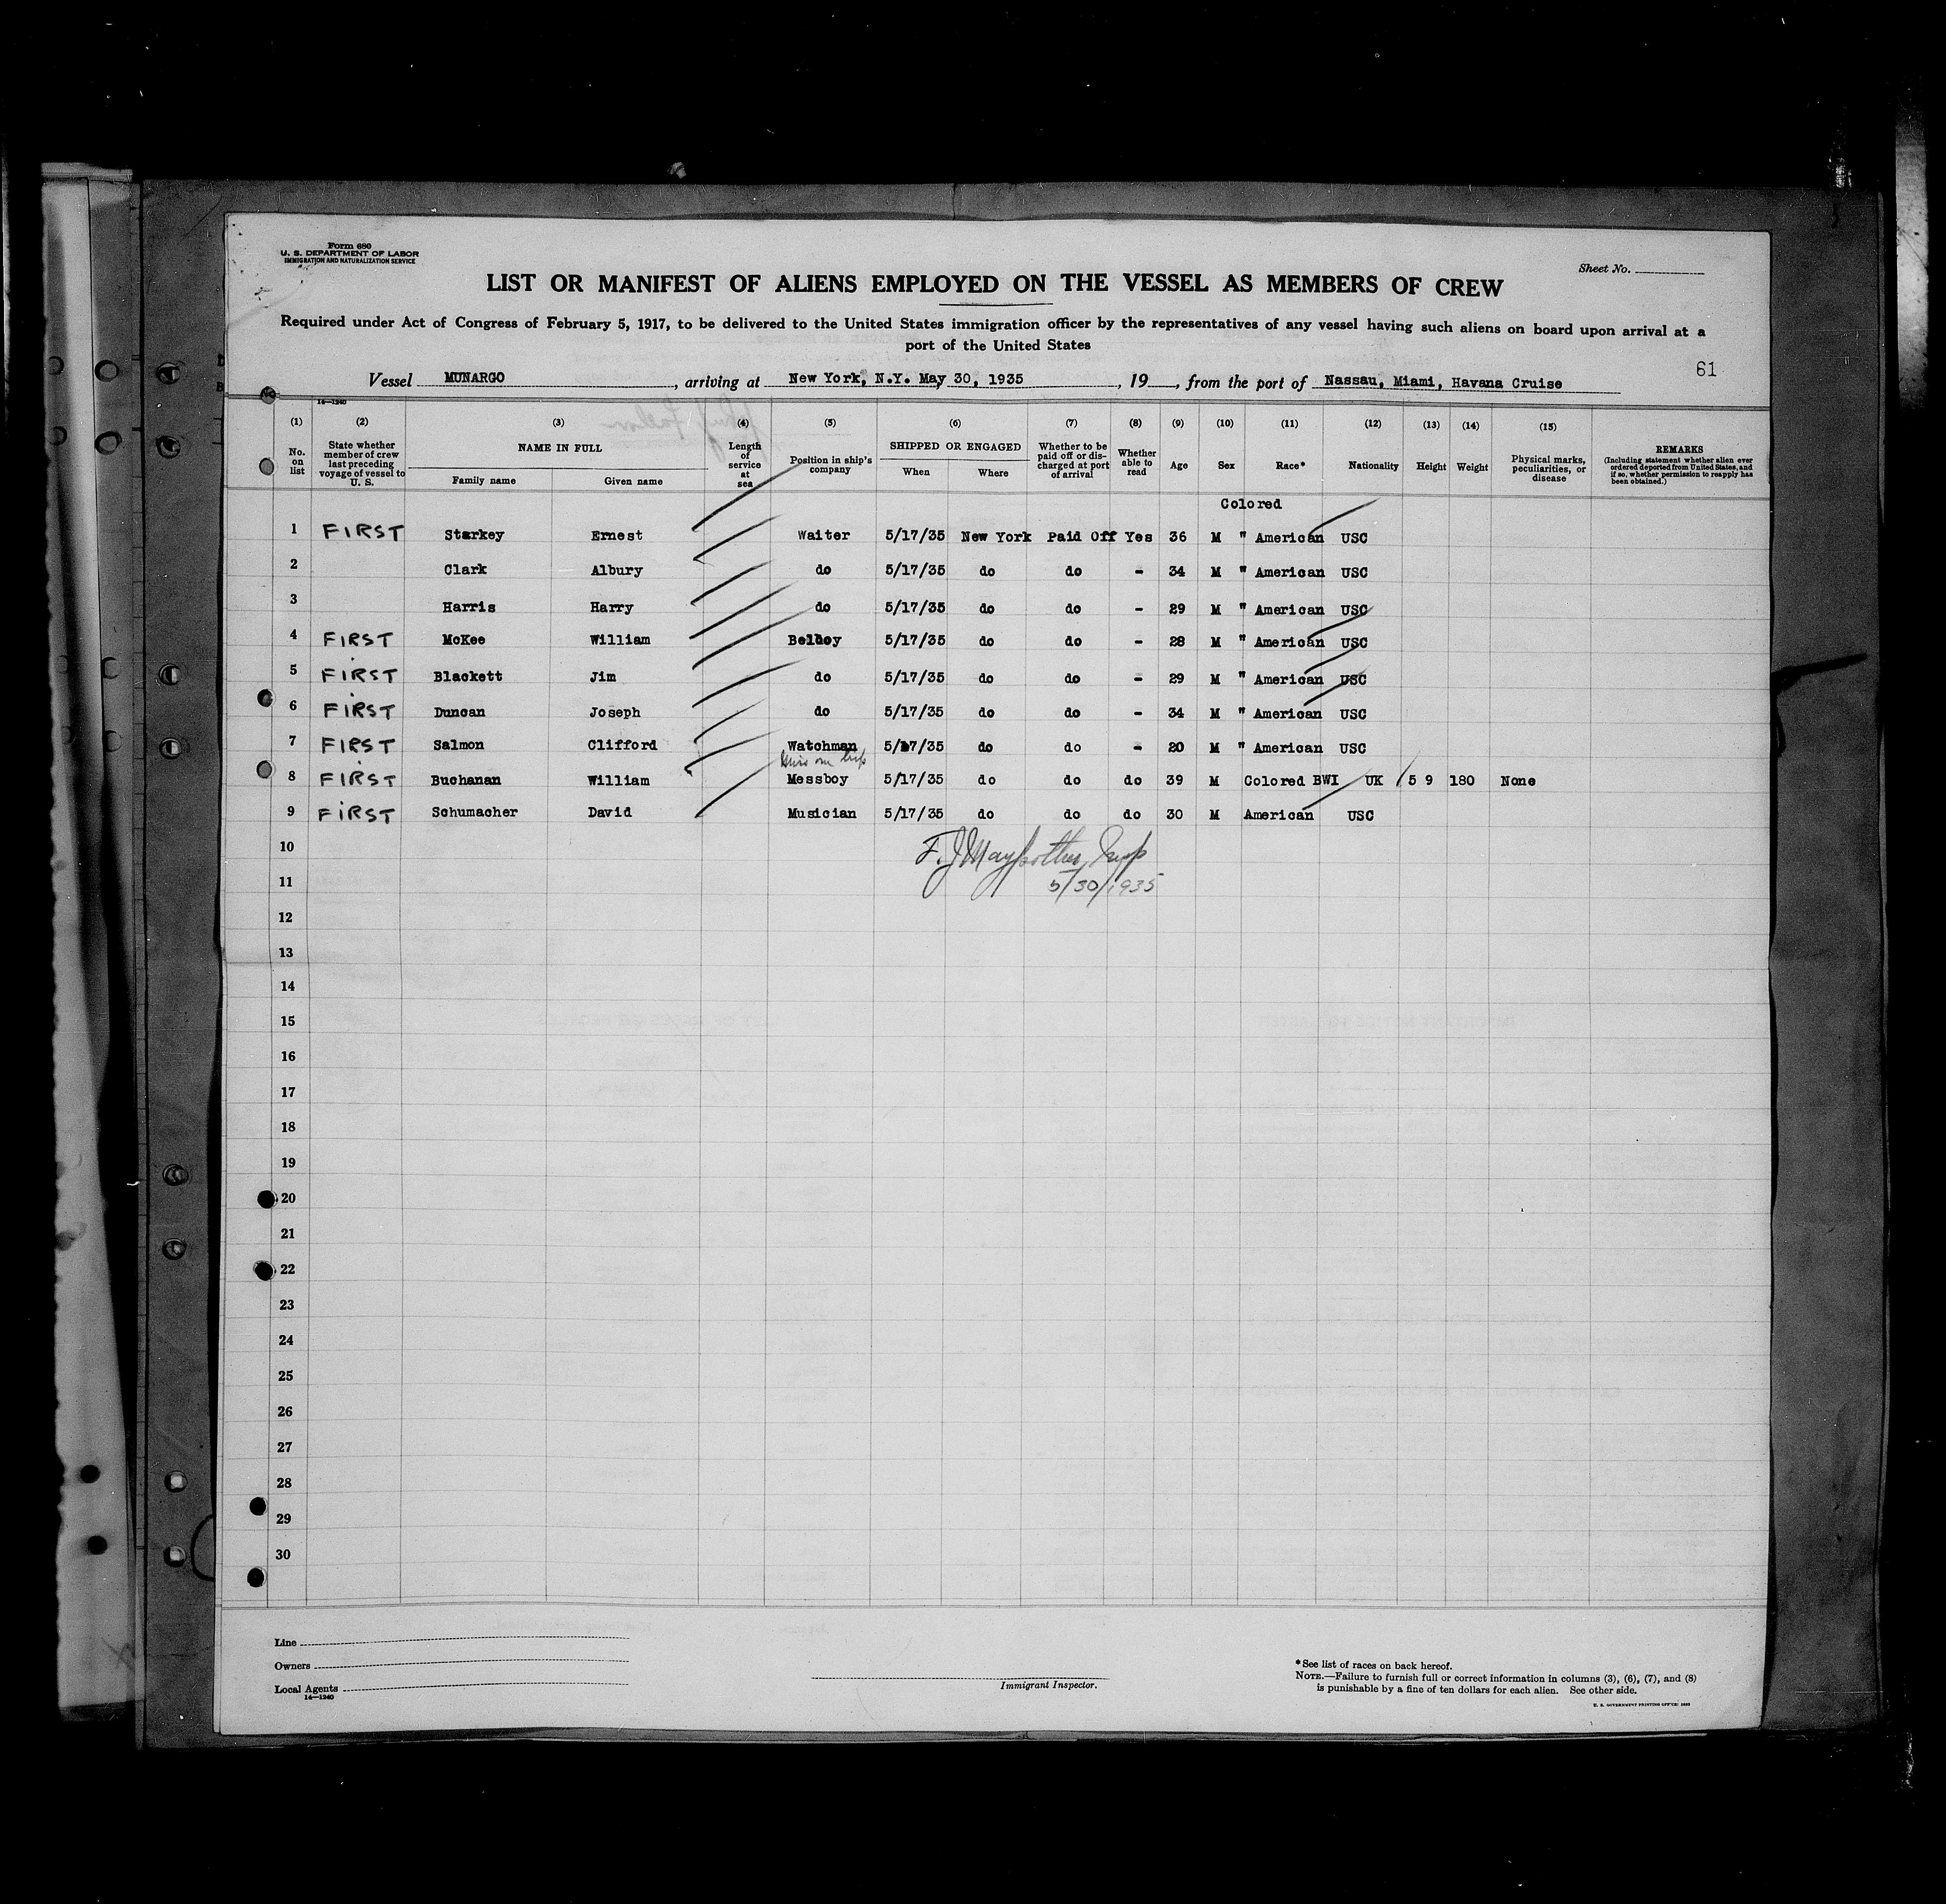 Form 680
U. S. DEPARTMENT OF LABOR
IMMIGRATION AND NATURALIZATION SERVICE
Sheet No.
LIST OR MANIFEST OF ALIENS EMPLOYED ON THE VESSEL AS MEMBERS OF CREW
Required under Act of Congress of February 5, 1917, to be delivered to the United States immigration officer by the representatives of any vessel having such aliens on board upon arrival at a
port of the United States
61
Vessel MUNARGO, arriving at New York, N.Y. May 30, 1935, 19, from the port of Nassau, Miami, Havana Cruise
14—1240
(1) (2) (3) (4) (5) (6) (7) (8) (9) (10) (11) (12) (13) (14) (15)
No. on list
State whether member of crew last preceding voyage of vessel to U. S.
NAME IN FULL
Family name Given name
Length of service at sea
Position in ship's company
SHIPPED OR ENGAGED
When Where
Whether to be paid off or discharged at port of arrival
Whether able to read
Age
Sex
Race*
Nationality
Height
Weight
Physical marks, peculiarities, or disease
REMARKS
(Including statement whether alien ever ordered deported from United States, and if so, whether permission to reapply has been obtained.)
Colored
1 FIRST Starkey Ernest Waiter 5/17/35 New York Paid Off Yes 36 M " American USC
2 Clark Albury do 5/17/35 do do - 34 M " American USC
3 Harris Harry do 5/17/35 do do - 29 M " American USC
4 FIRST McKee William Bellboy 5/17/35 do do - 28 M " American USC
5 FIRST Blackett Jim do 5/17/35 do do - 29 M " American USC
6 FIRST Duncan Joseph do 5/17/35 do do - 34 M " American USC
7 FIRST Salmon Clifford Watchman 5/17/35 do do - 20 M " American USC
8 FIRST Buchanan William Messboy 5/17/35 do do do 39 M Colored BWI UK 5 9 180 None
9 FIRST Schumacher David Musician 5/17/35 do do do 30 M American USC
10
5/30/1935
11
12
13
14
15
16
17
18
19
20
21
22
23
24
25
26
27
28
29
30
Line
Owners
Local Agents
14—1240
Immigrant Inspector.
*See list of races on back hereof.
NOTE.—Failure to furnish full or correct information in columns (3), (6), (7), and (8)
is punishable by a fine of ten dollars for each alien. See other side.